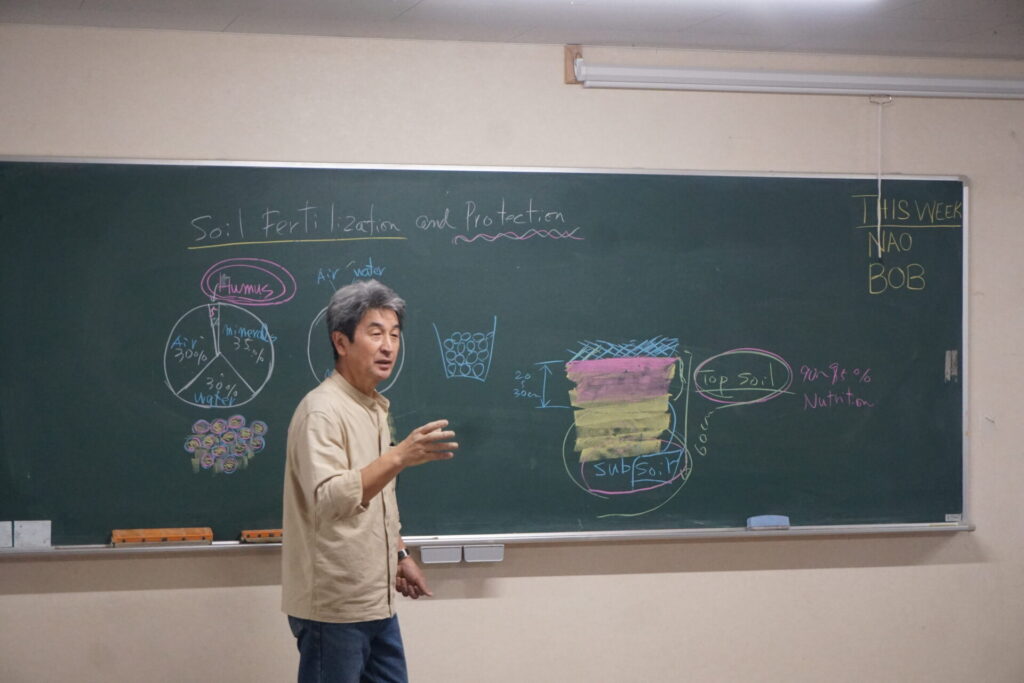 Soil Fertilization and Protection
THIS WEEK
NAO
BOB
Humus
Air water
5%
Air
30%
minerals
35%
30%
water
20
30cm
Top Soil
Nutrition
60cm
sub soil